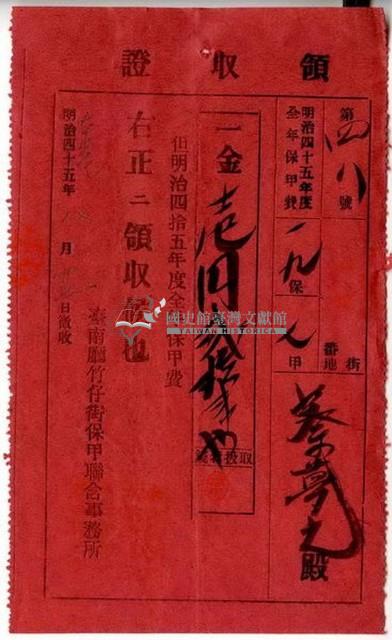 領收證
第四八號
明治四十五年度
全年保甲費
一九保
七甲
街
番地
蔡夢元殿
一金壱円貳拾
取扱者
但明治四拾五年度全年保甲費
右正ニ領收候也
明治四十五年 月 日徵收
臺南廳竹仔街保甲聯合事務所
國史館臺灣文獻館
TAIWAN HISTORICA